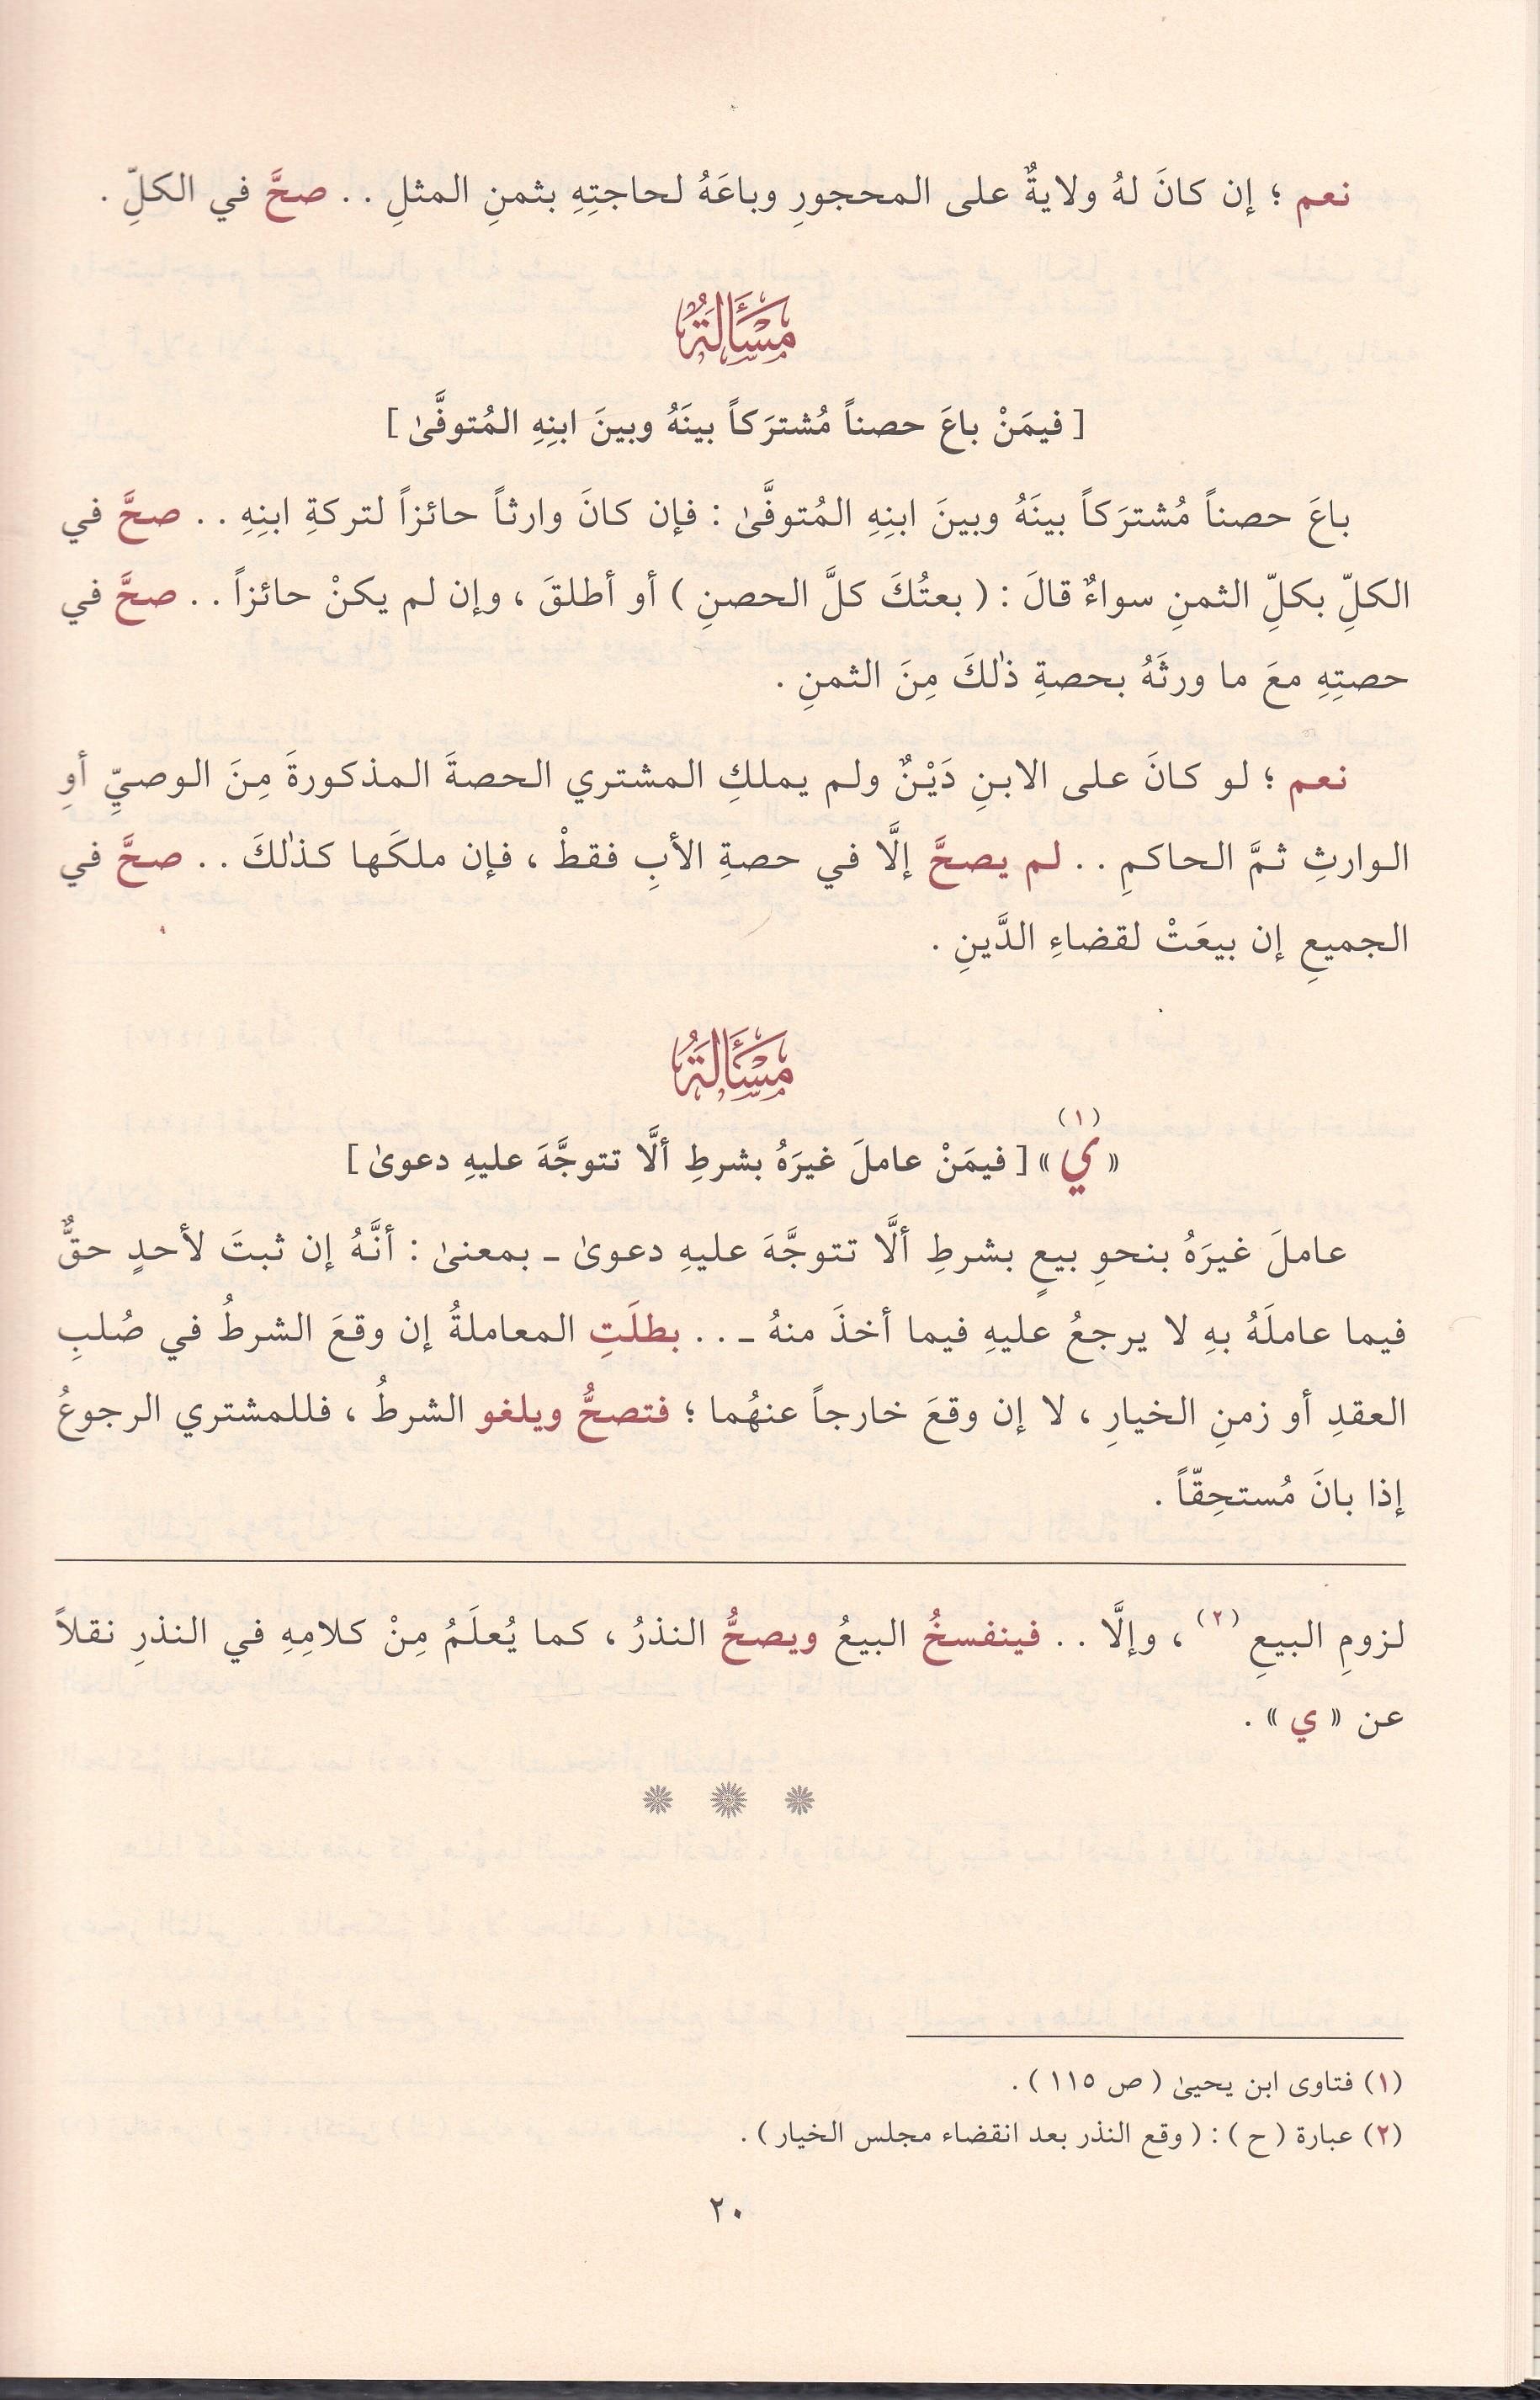 نعم ؛ إن كانَ لهُ ولايةٌ على المحجورِ وباعَهُ لحاجتِهِ بثمنِ المثلِ . . صحَّ في الكلِّ .
مَسْأَلَةٌ
[ فيمَنْ باعَ حصناً مُشترَكاً بينَهُ وبينَ ابنِهِ المُتوفَّىٰ ]
باعَ حصناً مُشترَكاً بينَهُ وبينَ ابنِهِ المُتوفَّىٰ : فإن كانَ وارثاً حائزاً لتركةِ ابنِهِ . . صحَّ في
الكلِّ بكلِّ الثمنِ سواءٌ قالَ : ( بعتُكَ كلَّ الحصنِ ) أو أطلقَ ، وإن لم يكنْ حائزاً . . صحَّ في
حصتِهِ معَ ما ورثَهُ بحصةِ ذٰلكَ مِنَ الثمنِ .
نعم ؛ لو كانَ على الابنِ دَيْنٌ ولم يملكِ المشتري الحصةَ المذكورةَ مِنَ الوصيِّ أوِ
الوارثِ ثمَّ الحاكمِ . . لم يصحَّ إلَّا في حصةِ الأبِ فقطْ ، فإن ملكَها كذٰلكَ . . صحَّ في
الجميعِ إن بيعَتْ لقضاءِ الدَّينِ .
مَسْأَلَةٌ
« ي »(١) [ فيمَنْ عاملَ غيرَهُ بشرطِ ألَّا تتوجَّهَ عليهِ دعوىٰ ]
عاملَ غيرَهُ بنحوِ بيعٍ بشرطِ ألَّا تتوجَّهَ عليهِ دعوىٰ ـ بمعنىٰ : أنَّهُ إن ثبتَ لأحدٍ حقٌّ
فيما عاملَهُ بهِ لا يرجعُ عليهِ فيما أخذَ منهُ ـ . . بطلَتِ المعاملةُ إن وقعَ الشرطُ في صُلبِ
العقدِ أو زمنِ الخيارِ ، لا إن وقعَ خارجاً عنهُما ؛ فتصحُّ ويلغو الشرطُ ، فللمشتري الرجوعُ
إذا بانَ مُستحِقّاً .
لزومِ البيعِ(٢) ، وإلَّا . . فينفسخُ البيعُ ويصحُّ النذرُ ، كما يُعلَمُ مِنْ كلامِهِ في النذرِ نقلاً
عن « ي » .
(١) فتاوى ابن يحيىٰ ( ص ١١٥ ) .
(٢) عبارة ( ح ) : ( وقع النذر بعد انقضاء مجلس الخيار ) .
٢٠